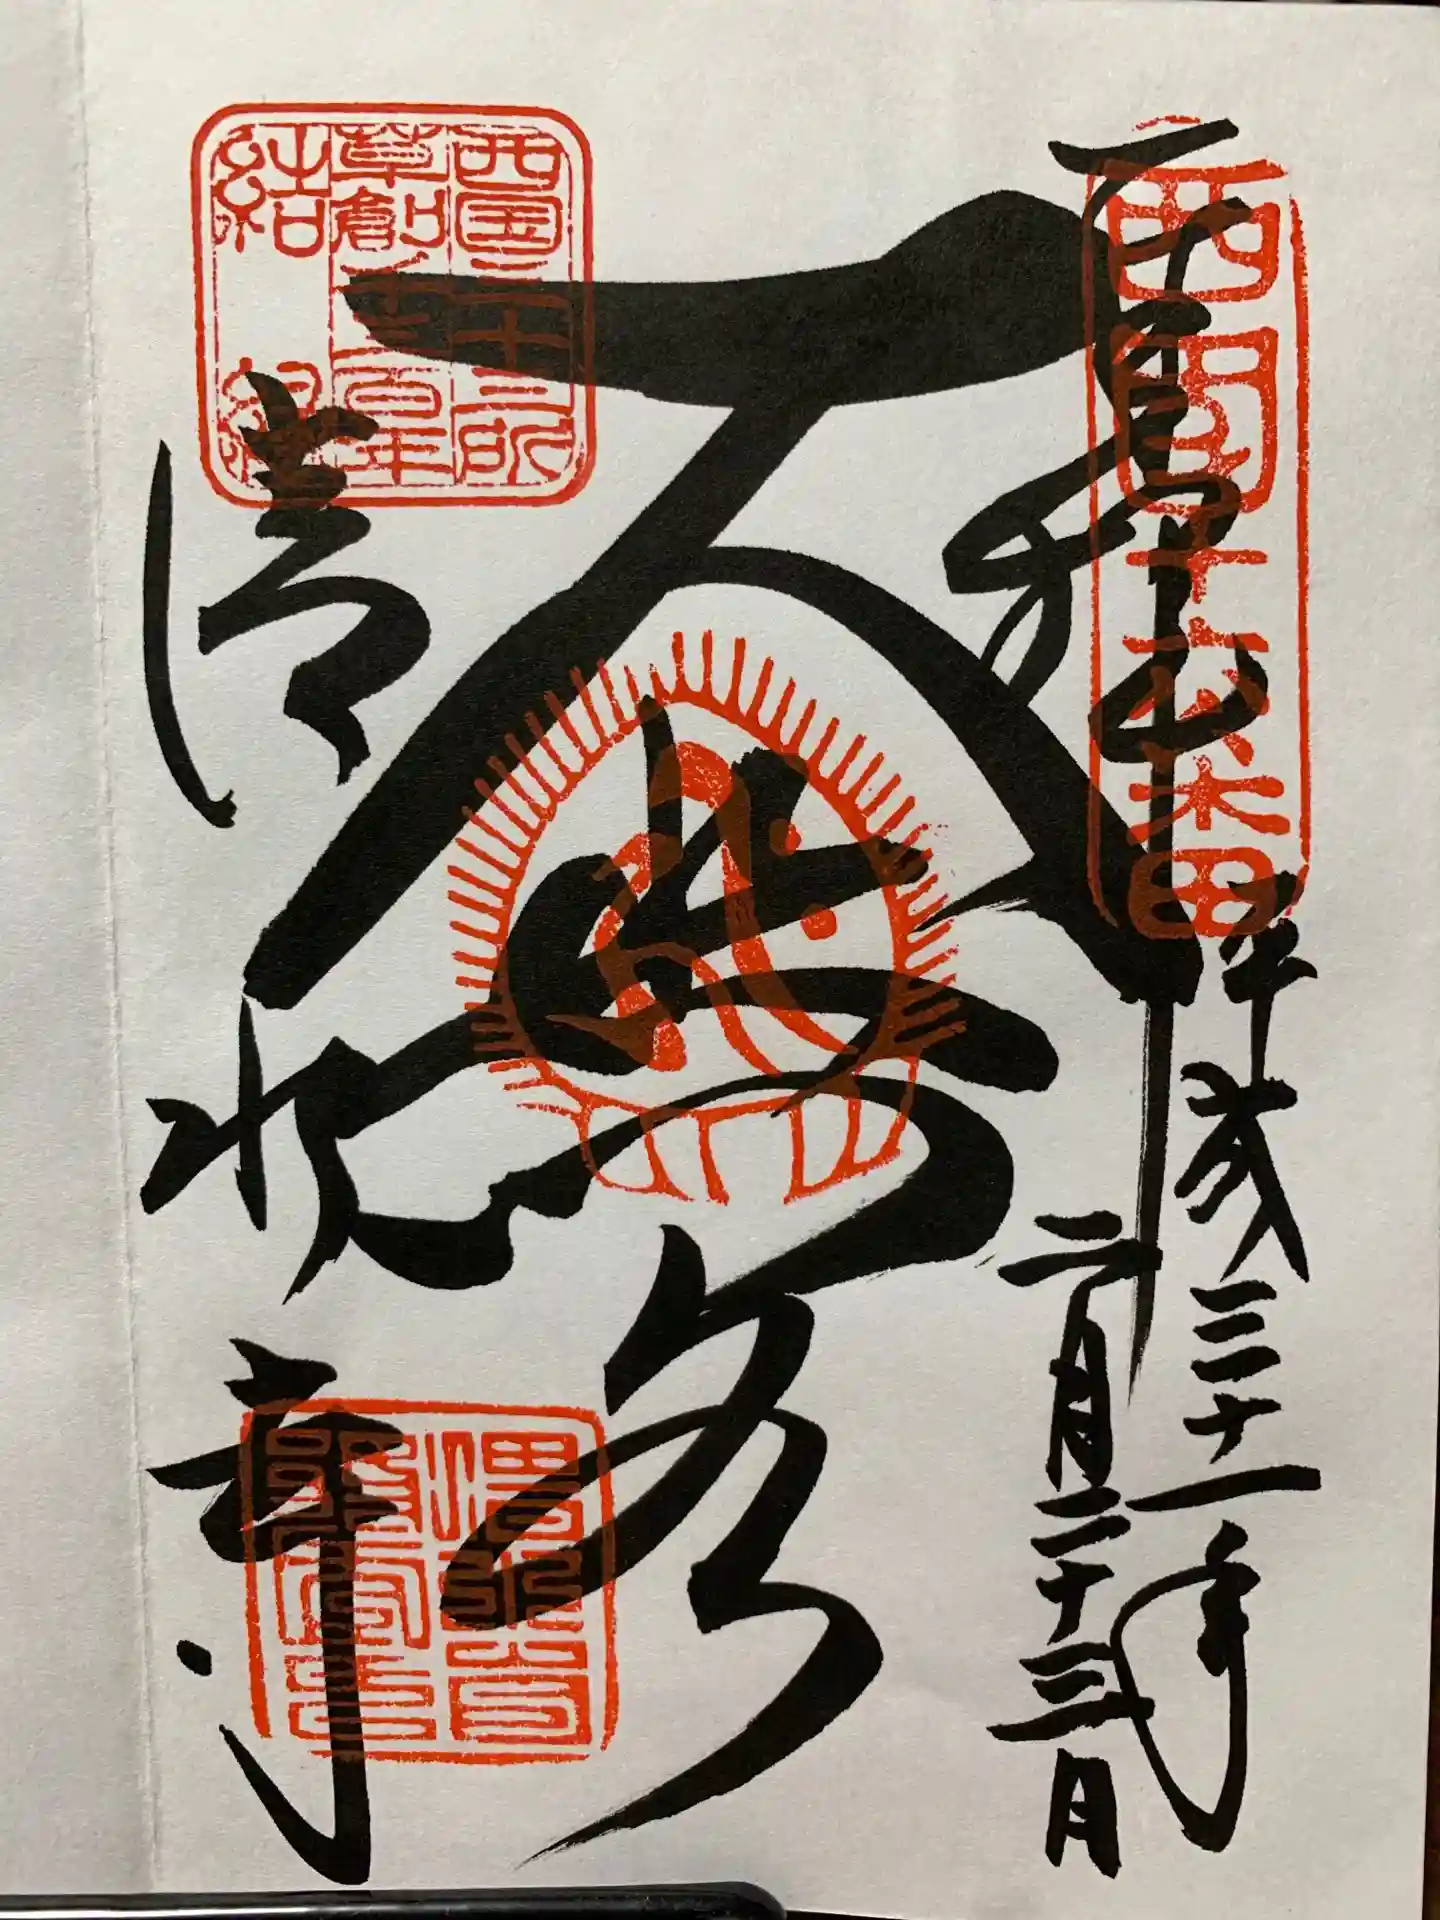 奉拝
西国十六番
平成三十一年
二月二十三日
大悲閣
西国三十三所
草創千三百年
結縁
清水寺